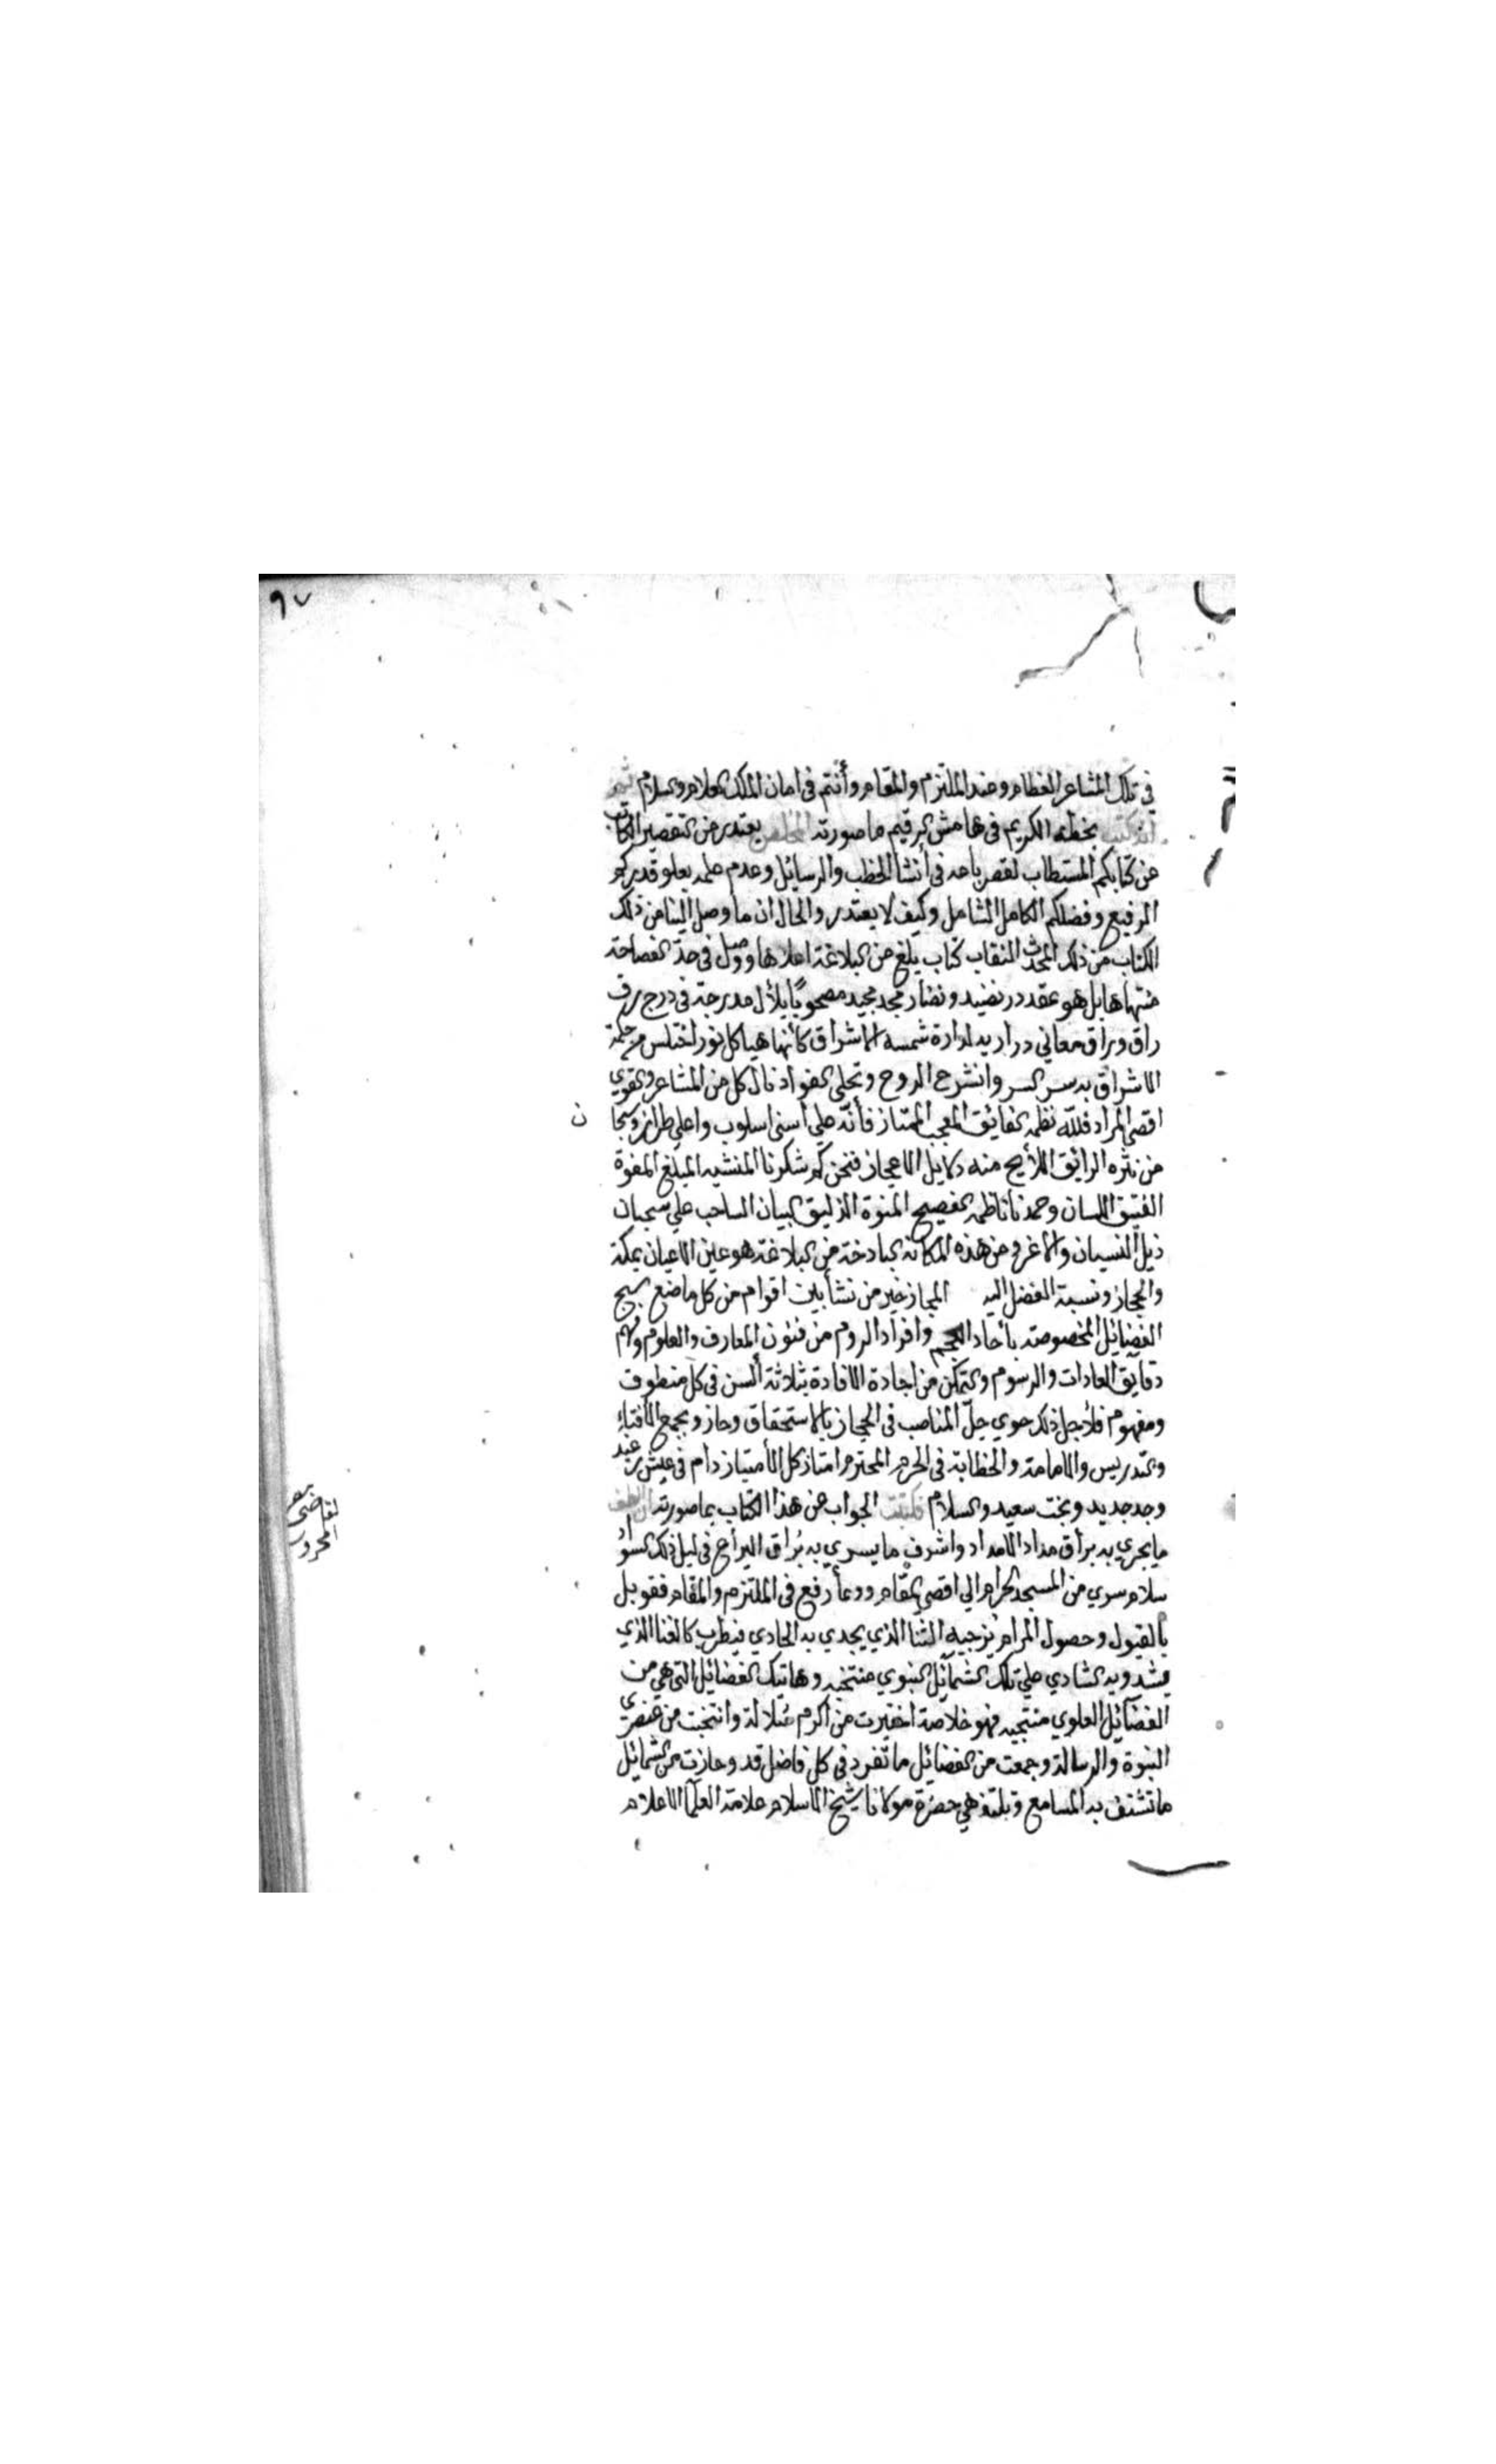 ٩٧
في تلك المشاعر العظام وعند الملتزم والمقام وأنتم في امان الملك العلام والسلام ثم
انه كتب بخطه الكريم في هامش الرقيم ما صورته المخلص يعتذر من التقصير الكاتب
عن كتابكم المستطاب لقصر باعه في أنشا الخطب والرسايل وعدم علمه بعلو قدركم
الرفيع وفضلكم الكامل الشامل وكيف لا يعتذر والحال ان ما وصل الينا من ذلك
الكتاب من ذلك المحدث النقاب كتاب بلغ من البلاغة اعلاها ووصل في حد الفصاحة
منتهاها بل هو عقد در نضيد ونضار مجد مجيد مصحوبا بلأل مدرجة في درج رق
راق وراق معاني دراريه لدارة شمسه الاشراق كأنها هياكل نور اختلس من حكمة
الاشراق به سر السر وانشرح الروح وتحلى الفواد نال كل من المشاعر والقوي
اقصي المراد فلله نظمه الفائق المعجب الممتاز فأنه علي أسنى اسلوب واعلي طراز وسبحا
ن
من نثره الرائق اللأيح منه دلايل الاعجاز فنحن كم شكرنا المنشيه المبلغ المفوة
الفتيق اللسان وحمدنا ناظمه الفصيح المنوة الذليق البيان الساحب علي سحبان
ذيل النسيان ولا غرو من هذه المكانة الباذخة من البلاغة هو عين الاعيان بمكة
والحجاز ونسبة الفضل اليه المجاز خير من نشأ بين اقوام من كل ماضع
الفضائل المخصوصة بأحاد العجم وافراد الروم من فنون المعارف والعلوم وفهم
دقايق العادات والرسوم والتمكن من اجادة الافادة بثلاثة ألسن في كل منطوق
ومفهوم فلأجل ذلك حوي جل المناصب في الحجاز بالاستحقاق وحاز وبجمع الأفتاء
والتدريس والامامة والخطابة في الحرم المحترم امتاز كل الأمتياز دام في عيش رغيد
وجد جديد وبخت سعيد والسلام فكتبت الجواب عن هذا الكتاب بما صورته الطف
ما يجري به براق مداد الامداد واشرف ما يسري به بُراق اليراع في ليل ذلك السواد
سلام سري من المسجد الحرام الي اقصي المقام ودعأ رفع في الملتزم والمقام فقوبل
بالقبول وحصول المرام نزجيه الثنا الذي يحدي به الحادي فيطرب كالغنا الذي
يشدو به الشادي علي تلك الشمآئل النبوي منتخبه وهاتيك الفضائل التي هي من
الفضآئل العلوي منتجبه فهو خلاصة اختيرت من اكرم سُلالة وانتخبت من عنصري
النبوة والرسالة وجمعت من الفضائل ما تفرد في كل فاضل قد وحازت من الشمائل
ما تشنف به المسامع وتلتذ هي حضرة مولانا شيخ الاسلام علامة العلمآ الاعلام